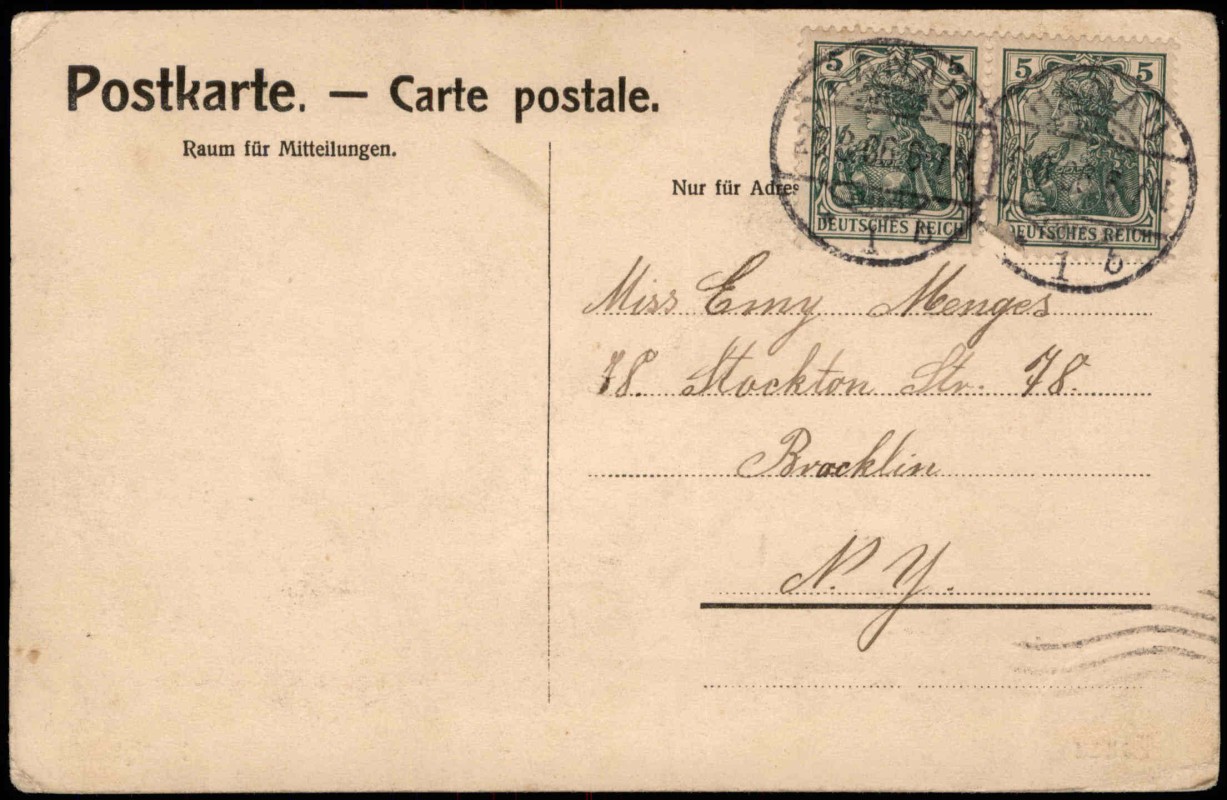 Postkarte. — Carte postale.
Raum für Mitteilungen.
Nur für Adres
5 5
DEUTSCHES REICH
5 5
DEUTSCHES REICH
06. 6-7 N
1 b
1 b
Miss Emy Menges
78. Stockton Str. 78.
Brocklin
N. Y.